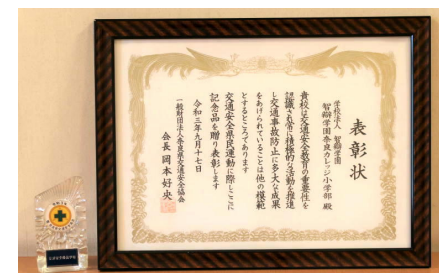 表彰状
学校法人 智辯学園
智辯学園奈良カレッジ小学部 殿
貴校は交通安全教育の重要性を
認識され常に積極的な活動を推進
し交通事故防止に多大な成果
をあげられていることは他の模範
とするところであります
交通安全県民運動に際しここに
記念品を贈り表彰します
令和三年九月十七日
一般財団法人奈良県交通安全協会
会長 岡本好央